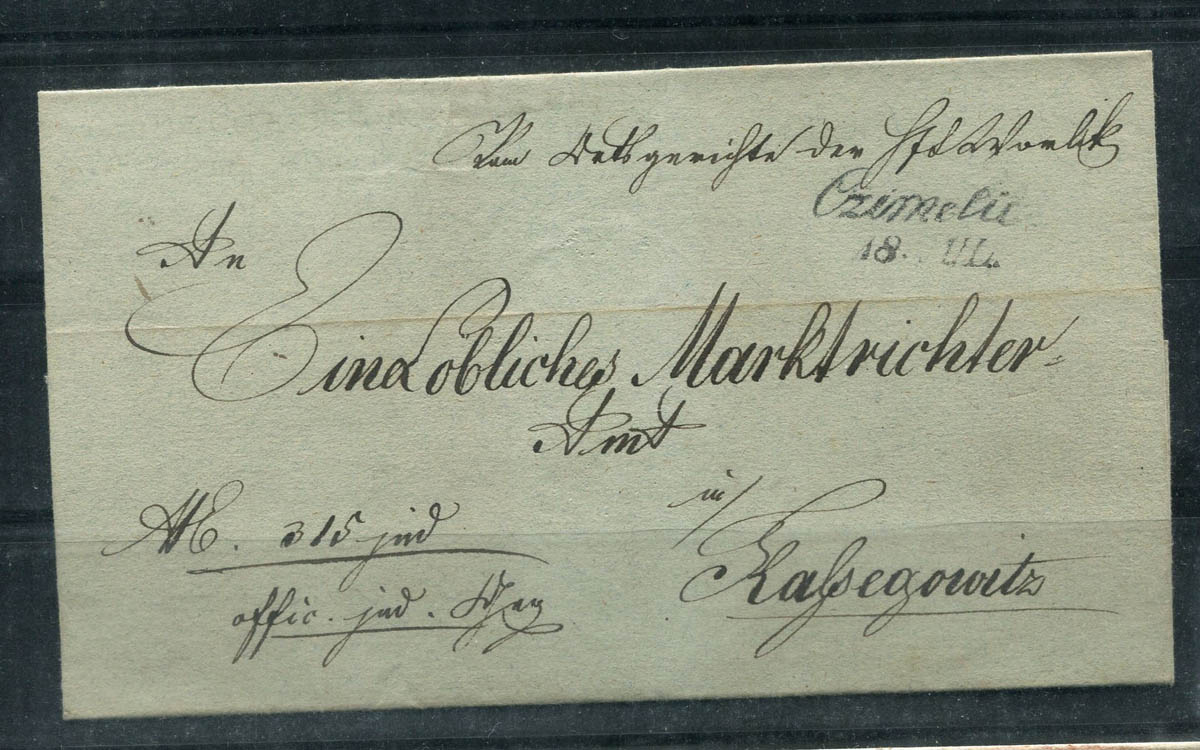 Vom Ortsgerichte der Hft Worlik
Czimelic
18.
An
Ein Löbliches Marktrichter-
Amt
in
Kaßegowitz
315 jud
offic. jud.